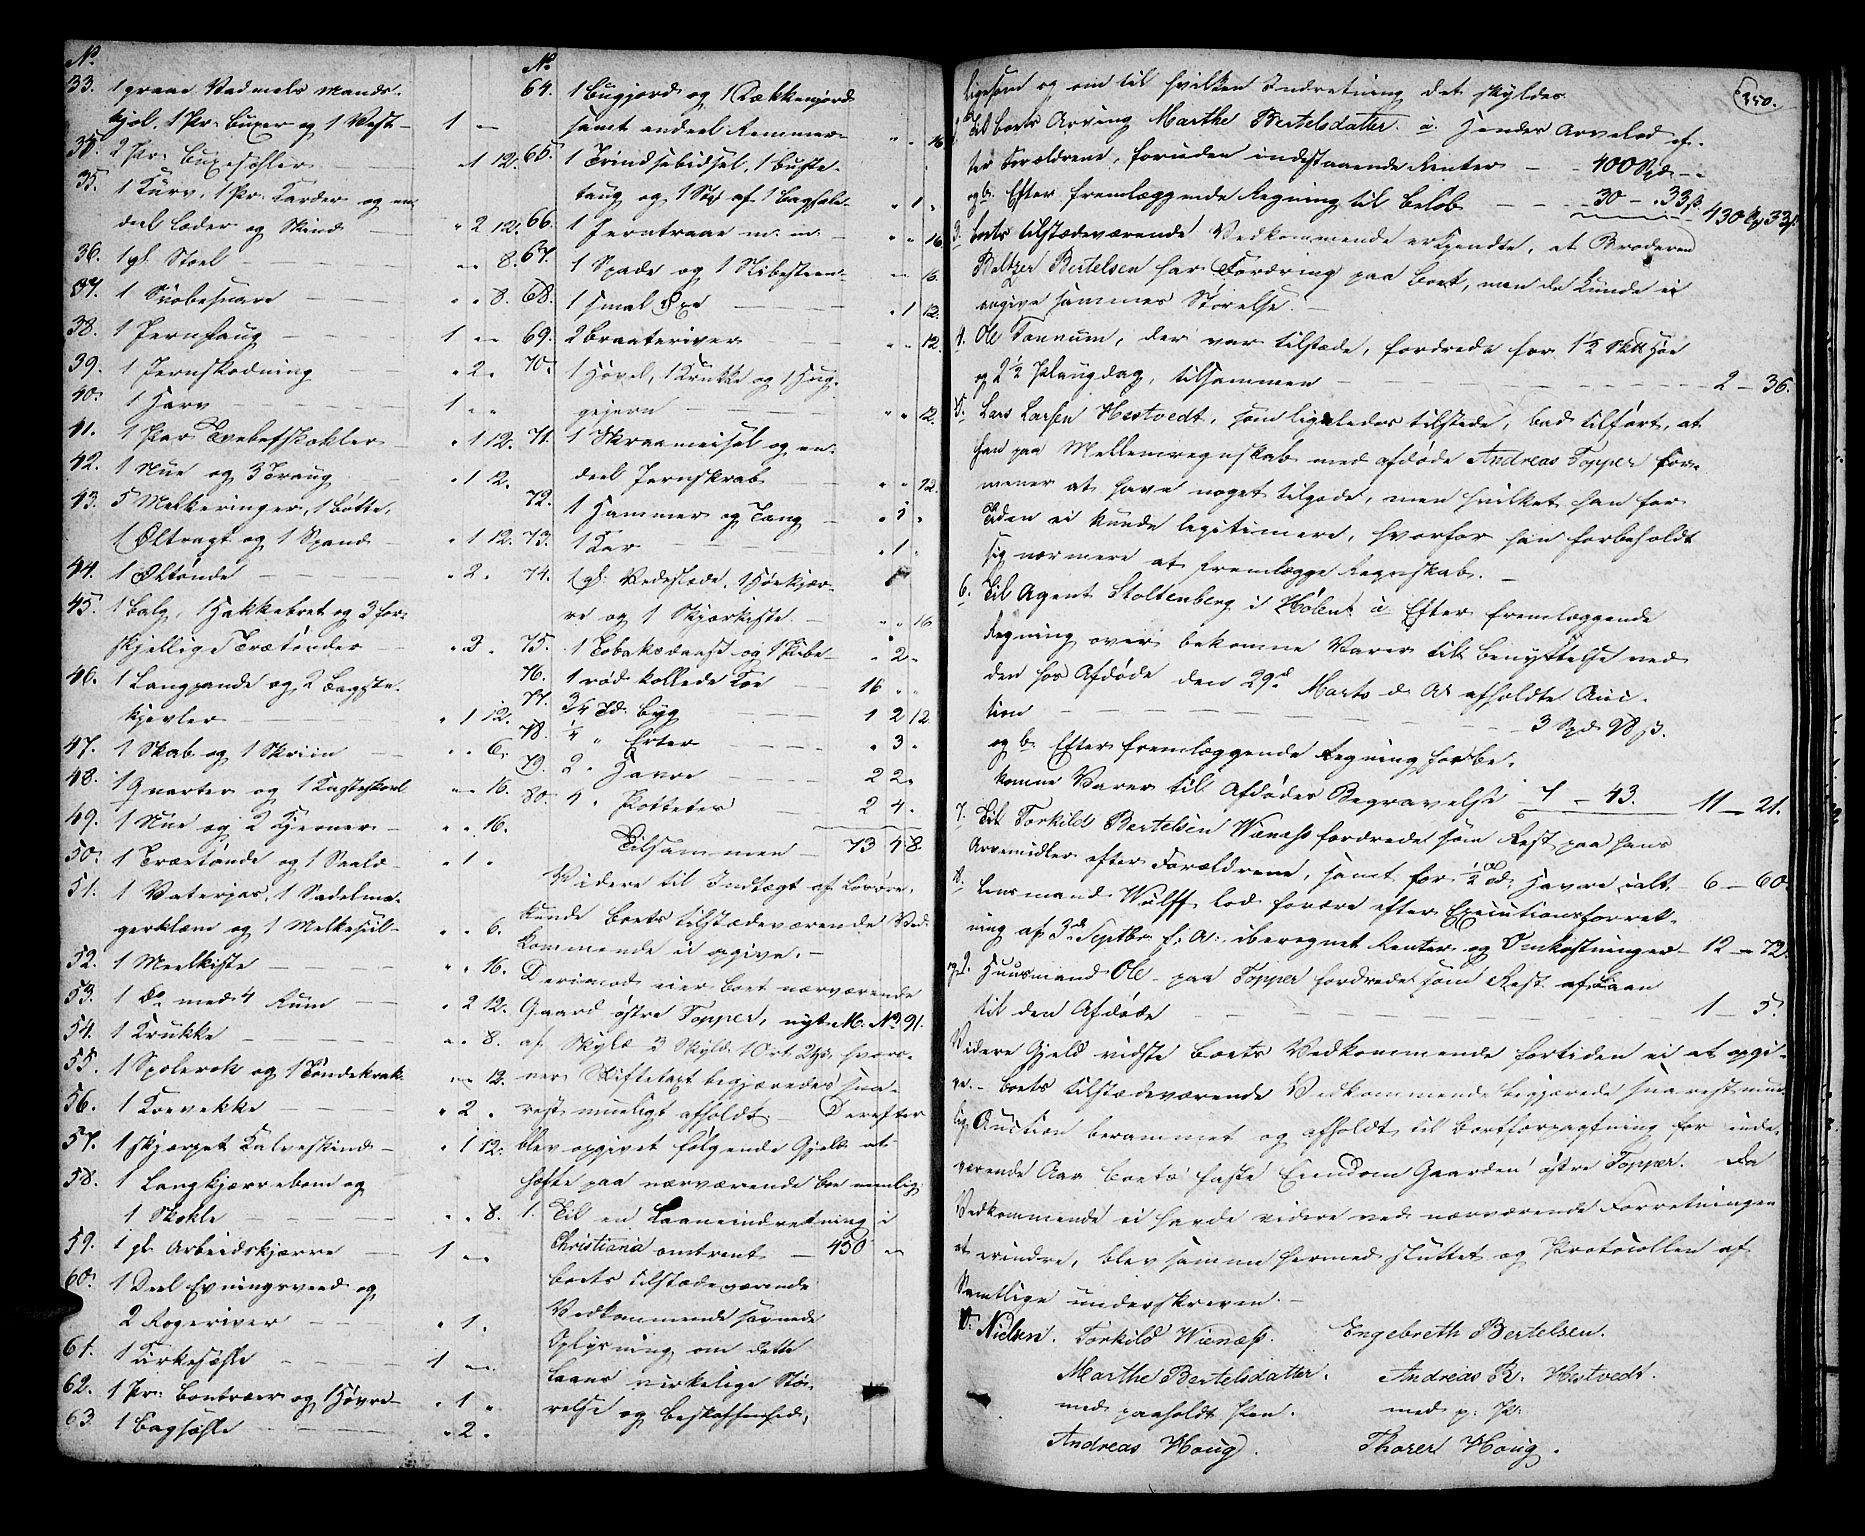 No
33. 1 graae Vadmels Mands-
kjol, 1 Pr: Buxer og 1 Vest 1 " "
35. 2 Par Buxesæhler " 1 12.
35. 1 Kurv, 1 Pr. Karder og en
deel Læder og Skind " 2 12.
36. 1 gl. Stoel " " 8.
37. 1 " " 8.
38. 1 1 " "
39. 1 Jernskodning " 2 "
40. 1 Harv 1 " "
41. 1 Par " 1 12.
42. 1 Nue og 3 Traug " 1 12.
43. 5 Melkeringer, 1 Bøtte,
1 Øltragt og 1 Spand " 1 12.
44. 1 Øltønde " 2 "
45. 1 Balg, 1 Hakkebret og 3 for-
skjellige Trætønder " 3 "
46. 1 Langpande og 2 Bagste-
kjevler " 1 12.
47. 1 Skab og 1 Skriin " " 6.
48. 1 Qvarter og 1 Kasteskovl " " 16.
49. 1 Nue og 2 Kjerner " " 16.
50. 1 Trætønde og 1 Saald " 1 "
51. 1 Vaterpas, 1 Sadelma-
gerklem og 1 Melkesiil " " 6.
52. 1 Meelkiste " " 16.
53. 1 Do med 4 Rum " 2 12.
54. 1 Krukke " " 8.
55. 1 Spolerok og 1 Tøndekrak " " 12.
56. 1 " 2 "
57. 1 skjæpet Kalveskind " 1 12.
58. 1 Langkjærrebom og
1 Skokle " " 8.
59. 1 gl. Arbeidskjærre 1 " "
60. 1 Deel Evningsveed og
2 Rogeriver " 1 "
61. 1 Kirkesæhle 1 " "
62. 1 Pr: Bomtræer og 1 Høvre " 1 "
63. 1 Bagsæhle " 2 "
No
64. 1 Bugjord og 1
samt endeel Remmer " " 16
65. 1 Grindsebidsel, 1
taug og 1 af 1 Bagsæle " 1 "
66. 1 Jerntraae m. m. " " 16
67. 1 Spade og 1 Slibesteen " " 16.
68. 1 smal Øxe " 1 12.
69. 2 Braateriver " " 12.
70. 1 Høvel, 1 Krukke og 1 Hug-
gejern " " 12.
71. 1 Skraameisel og en-
deel Jernskrab " " 12.
72. 1 Hammer og Tang " 1 "
73. 1 Kar " 1 "
74. 1 gl: Vedeslæde, 1 Høekjær-
re og 1 Skjækiste " " 16
75. 1 Tobaksdaase og 1 Pibe " 2 "
76. 1 rød kollede Koe 16 " "
77. 3/4 Td. Byg 1 2 12
78. 1/4 " Erter " 3 "
79. 2 " Havre 2 2 "
80. 4 " Potteter 2 4 "
Tilsammen 73 4 8.
Videre til Indtægt af Løsøre
kunde Boets tilstædeværende Ved-
kommende ei opgive. —
Derimod eier Boet nærværende
Gaard østre Topper, nyt M. No 91.
af Skyld 2 Skyld: 1 Ort 2 , hvors-
ver Skiftetaxt begjæredes sna-
rest mueligt afholdt. Derefter
blev opgivet følgende Gjeld at
hæfte paa nærværende Boe nemlig:
1. Til en Laaneindretning i
Christiania omtrent — 450 "
Boets tilstædeværende
Vedkommende savnede
Oplysning om dette
Laans virkelige Stør-
relse og Beskaffenhed,
350.
ligesom og om til hvilken Indretning det skyldes
2. Til Boets Arving Marthe Bertelsdatter. a. Hendes Arvelod ef-
ter Forældrene, foruden indestaaende Renter — 400 Spd —
og b. Efter fremlæggende Regning til Beløb — 30 — 33 ß 430 Sp 33 ß.
3. Boets tilstædeværende Vedkommende erkjendte, at Broderen
Baltzer Bertelsen har Fordring paa Boet, men de kunde ei
angive sammes Størelse. —
4. Ole Sannum, der var tilstæde, fordrede for 1 1/2 Sk℔ Høe
og 2 1/2 Plaugdag, tilsammen — 2 — 36.
5. Lars Larsen Hestvedt, som ligeledes tilstede, bad tilført, at
han paa Mellemregnskab med afdøde Andreas Topper for-
mener at have noget tilgode, men hvilket han for
Tiden ei kunde legitimere, hvorfor han forbeholdt
sig nærmere at fremlægge Regnskab. —
6. Til Agent Stoltenberg i Holen: a Efter fremlæggende
Regning over bekomne Varer til Benyttelse ved
den hos Afdøde den 29d Marts d. A. afholdte Auc-
tion — 3 Spd 98 ß.
og b. Efter fremlæggende Regning for be-
komne Varer til Afdødes Begravelse 7 — 43. 11 — 21.
7. Til Torkild Bertelsen Wienæss fordredes som Rest paa hans
Arvemidler efter Forældrene, samt for 1/2 Td. Havre, ialt 6 — 60.
8. Lensmand Wulff lod fordre efter Executionsforret-
ning af 3d Septbr f. A. iberegnet Renter og Omkostninger 12 — 72.
og 9. Huusmand Ole paa Topper fordrede som Rest af Laan
til den Afdøde — 1 — 5.
Videre Gjeld vidste Boets Vedkommende for tiden ei at opgi-
ve. — Boets tilstædeværende Vedkommende begjærede snarest mue-
lig Auction berammet og afholdt til Bortforpagtning for inde-
værende Aar Boets faste Eiendom Gaarden østre Topper. Da
Vedkommende ei havde videre ved nærværende Forretningen
at erindre, blev samme hermed sluttet og Protocollen af
Samtlige underskreven. —
V. Nielsen. Torkild Wienæss. Engebreth Bertelsen.
Marthe Bertelsdatter. Andreas R. Hestvedt.
med paaholdt Pen. med p. P.
Andreas Houg. Thorer Houg.